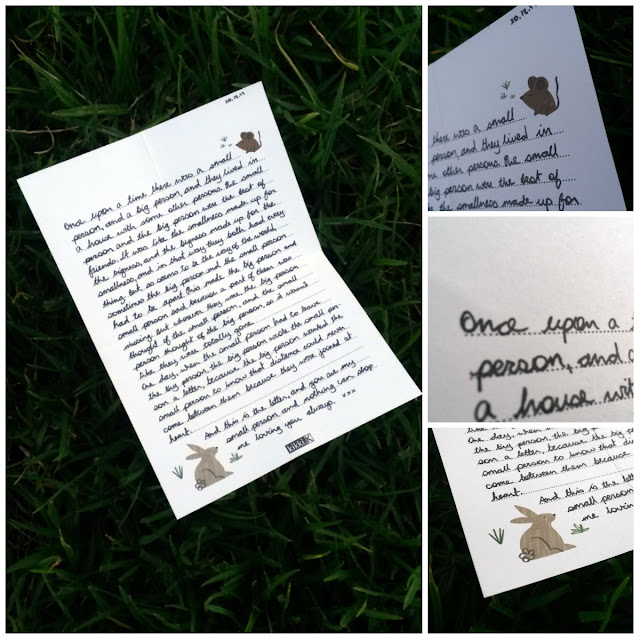 Once upon a time there was a small
person, and a big person, and they lived in
a house with some other persons. The small
person and the big person were the best of
friends. It was like the smallness made up for
the bigness, and the bigness made up for the
smallness, and in that way they both had every
thing. But, as seems to be the way of the world,
sometimes the big person and the small person
had to be apart. This made the big person and
small person sad because a part of them was
missing. But wherever they were the big person
thought of the small person, and the small
person thought of the big person, so it wasnt
like they were totally gone.
One day, when the small person had to leave
the big person, the big person wrote the small per-
son a letter, because the big person wanted the
small person to know that distance could never
come between them because they were joined at
heart.
And this is the letter, and you are my
small person and nothing can stop
me loving you, always. xxx
there was a small
person, and they lived in
me other persons. The small
big person were the best of
the smallness made up for
Once upon a
person, and
a house wit
One day, when
the big person, the big
son a letter, because the big pe
small person to know that dis
come between them because
heart.
And this is the lett
small person
me lovin